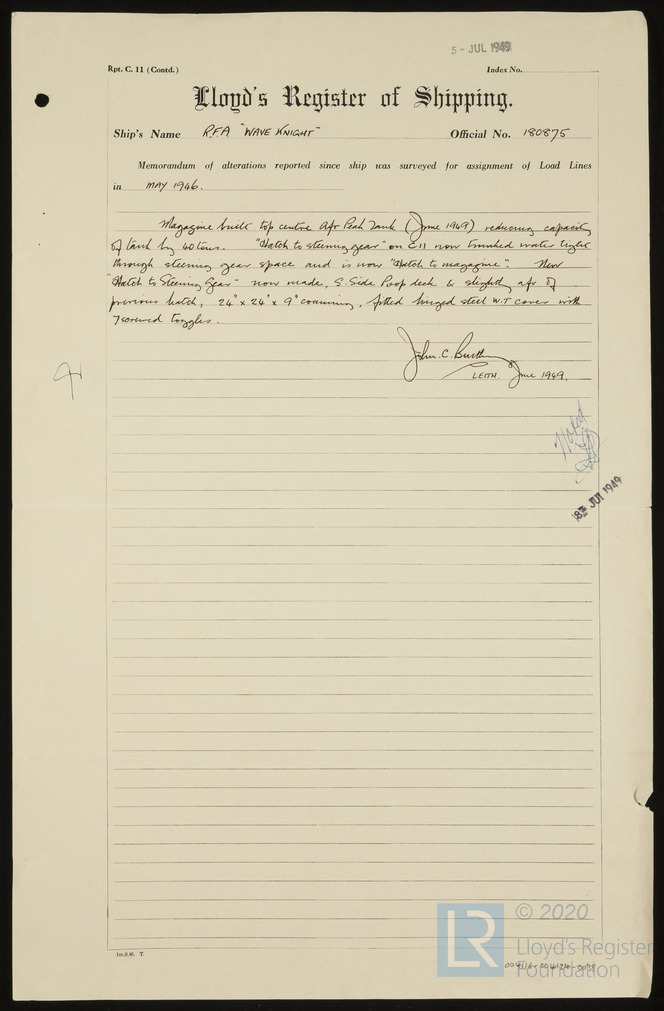 5 - JUL 1949
Rpt. C. 11 (Contd.)
Index No.
Lloyd's Register of Shipping.
Ship's Name R.F.A "WAVE KNIGHT" Official No. 180875
Memorandum of alterations reported since ship was surveyed for assignment of Load Lines
in MAY 1946.
Magazine built top centre Aft Peak Tank (June 1949) reducing capacity
of tank by 40 tons. "Hatch to steering gear" on C11 now trunked water tight
through steering gear space and is now "Hatch to magazine". New
"Hatch to Steering Gear" now made, S. Side Poop deck & slightly aft of
previous hatch, 24" x 24" x 9" coaming, fitted hinged steel W.T cover with
7 screwed toggles.
John C.
LEITH. June 1949.
Noted
JUL 1949
1m.8.46. T.
LR
© 2020
Lloyd's Register
Foundation